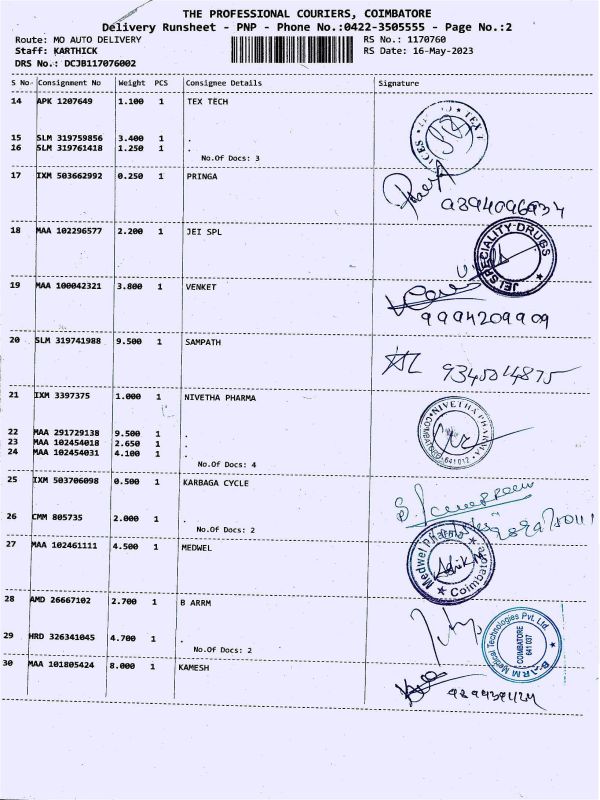 THE PROFESSIONAL COURIERS, COIMBATORE
Delivery Runsheet - PNP - Phone No.:0422-3505555 - Page No.:2
Route: MO AUTO DELIVERY
RS No.: 1170760
Staff: KARTHICK
RS Date: 16-May-2023
DRS No.: DCJB117076002
S No Consignment No Weight PCS Consignee Details Signature
14 APK 1207649 1.100 1 TEX TECH
15 SLM 319759856 3.400 1 .
16 SLM 319761418 1.250 1 .
No.Of Docs: 3
17 IXM 503662992 0.250 1 PRINGA
9394096934
18 MAA 102296577 2.200 1 JEI SPL
JEI SPECIALITY DRUGS
19 MAA 100042321 3.800 1 VENKET
9994209909
20 SLM 319741988 9.500 1 SAMPATH
9345014875
21 IXM 3397375 1.000 1 NIVETHA PHARMA
NIVETHA PHARMA
22 MAA 291729138 9.500 1 .
23 MAA 102454018 2.650 1 .
24 MAA 102454031 4.100 1 .
No.Of Docs: 4
25 IXM 503706098 0.500 1 KARBAGA CYCLE
26 CMM 805735 2.000 1 .
No.Of Docs: 2
27 MAA 102461111 4.500 1 MEDWEL
Medwel Pharma
Coimbatore
28 AMD 26667102 2.700 1 B ARRM
B.ARM Medical Technologies Pvt. Ltd
COIMBATORE
641 037
29 HRD 326341045 4.700 1 .
No.Of Docs: 2
30 MAA 101805424 8.000 1 KAMESH